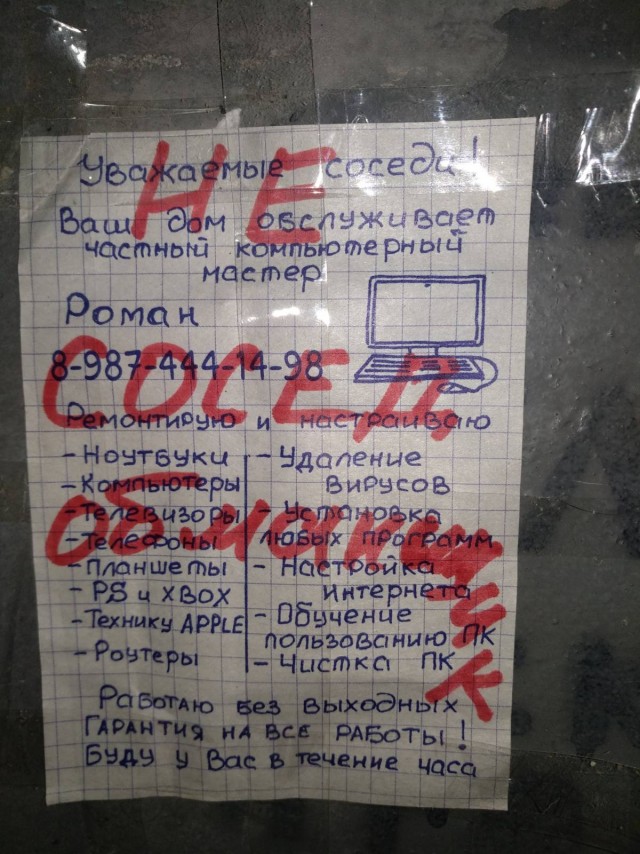 Уважаемые соседи!
НЕ
Ваш дом обслуживает
частный компьютерный
мастер
Роман
8-987-444-14-98
СОСЕД
Ремонтирую и настраиваю
- Ноутбуки
- Компьютеры
- Телевизоры
- Телефоны
- Планшеты
- PS и XBOX
- Технику APPLE
- Роутеры
- Удаление
вирусов
- Установка
любых программ
- Настройка
интернета
- Обучение
пользованию ПК
- Чистка ПК
Работаю без выходных
ГАРАНТИЯ НА ВСЕ РАБОТЫ!
Буду у Вас в течение часа